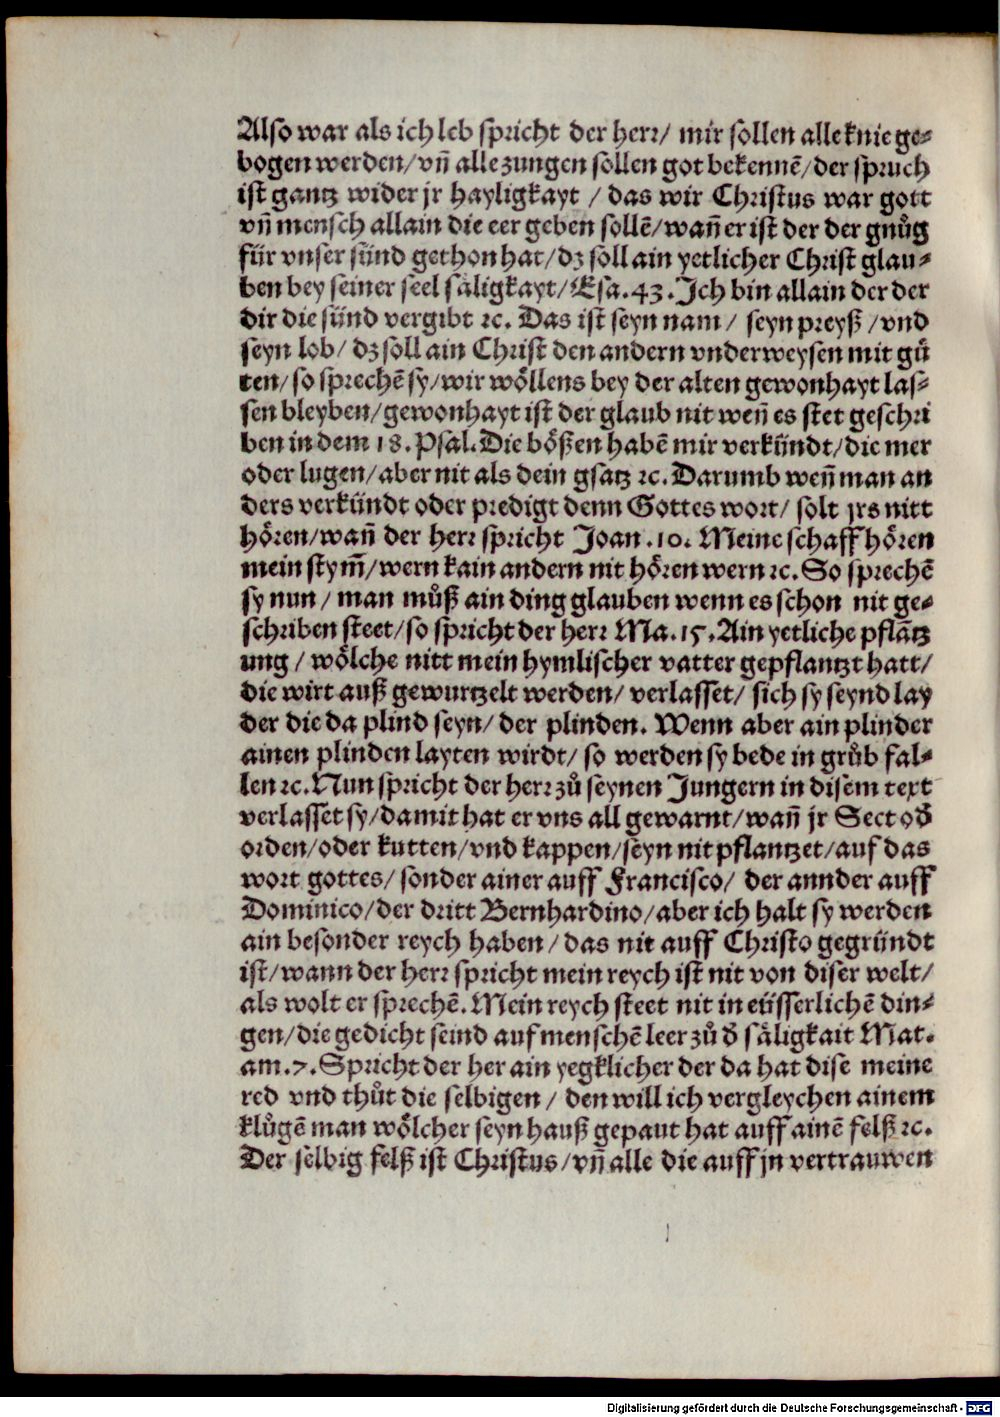 Also war als ich leb spricht der herr/ mir sollen alle knie ge-
bogen werden/vñ alle zungen sollen got bekennẽ/der spruch
ist gantz wider jr hayligkayt / das wir Christus war gott
vñ mensch allain die eer geben sollẽ/wañ er ist der der gnůg
für vnser sünd gethon hat/dz soll ain yetlicher Christ glau-
ben bey seiner seel säligkayt/Esa.43.Ich bin allain der der
dir die sünd vergibt ꝛc. Das ist seyn nam/ seyn preyß /vnd
seyn lob/ dz soll ain Christ den andern vnderweysen mit gů
ten/ so sprechẽ sy/wir wöllens bey der alten gewonhayt las-
sen bleyben/gewonhayt ist der glaub nit weñ es stet geschri
ben in dem 18.Psal.Die bößen habẽ mir verkündt/die mer
oder lugen/aber nit als dein gsatz ꝛc.Darumb weñ man an
ders verkündt oder predigt denn Gottes wort/ solt jrs nitt
hören/wañ der herr spricht Joan.10. Meine schaff hören
mein stym̃/wern kain andern nit hören wern ꝛc.So sprechẽ
sy nun / man můß ain ding glauben wenn es schon nit ge-
schriben steet/so spricht der herr Ma.15.Ain yetliche pflãtz
ung / wölche nitt mein hymlischer vatter gepflantzt hatt/
die wirt auß gewurtzelt werden/ verlasset/ sich sy seynd lay
der die da plind seyn/ der plinden. Wenn aber ain plinder
ainen plinden layten wirdt/ so werden sy bede in grůb fal-
len ꝛc.Nun spricht der herr zů seynen Jungern in disem text
verlasset sy/damit hat er vns all gewarnt/wañ jr Sect od̃
orden/oder kutten/vnd kappen/seyn nit pflantzet/auf das
wort gottes/ sonder ainer auff Francisco/ der annder auff
Dominico/der dritt Bernhardino/aber ich halt sy werden
ain besonder reych haben/das nit auff Christo gegründt
ist/wann der herr spricht mein reych ist nit von diser welt/
als wolt er sprechẽ.Mein reych steet nit in eüsserlichẽ din-
gen/die gedicht seind auf menschẽ leer zů d̃ säligkait Mat.
am.7.Spricht der her ain yegklicher der da hat dise meine
red vnd thůt die selbigen / den will ich vergleychen ainem
klůgẽ man wölcher seyn hauß gepaut hat auff ainẽ felß ꝛc.
Der selbig felß ist Christus/vñ alle die auff jn vertrauwen
Digitalisierung gefördert durch die Deutsche Forschungsgemeinschaft - DFG